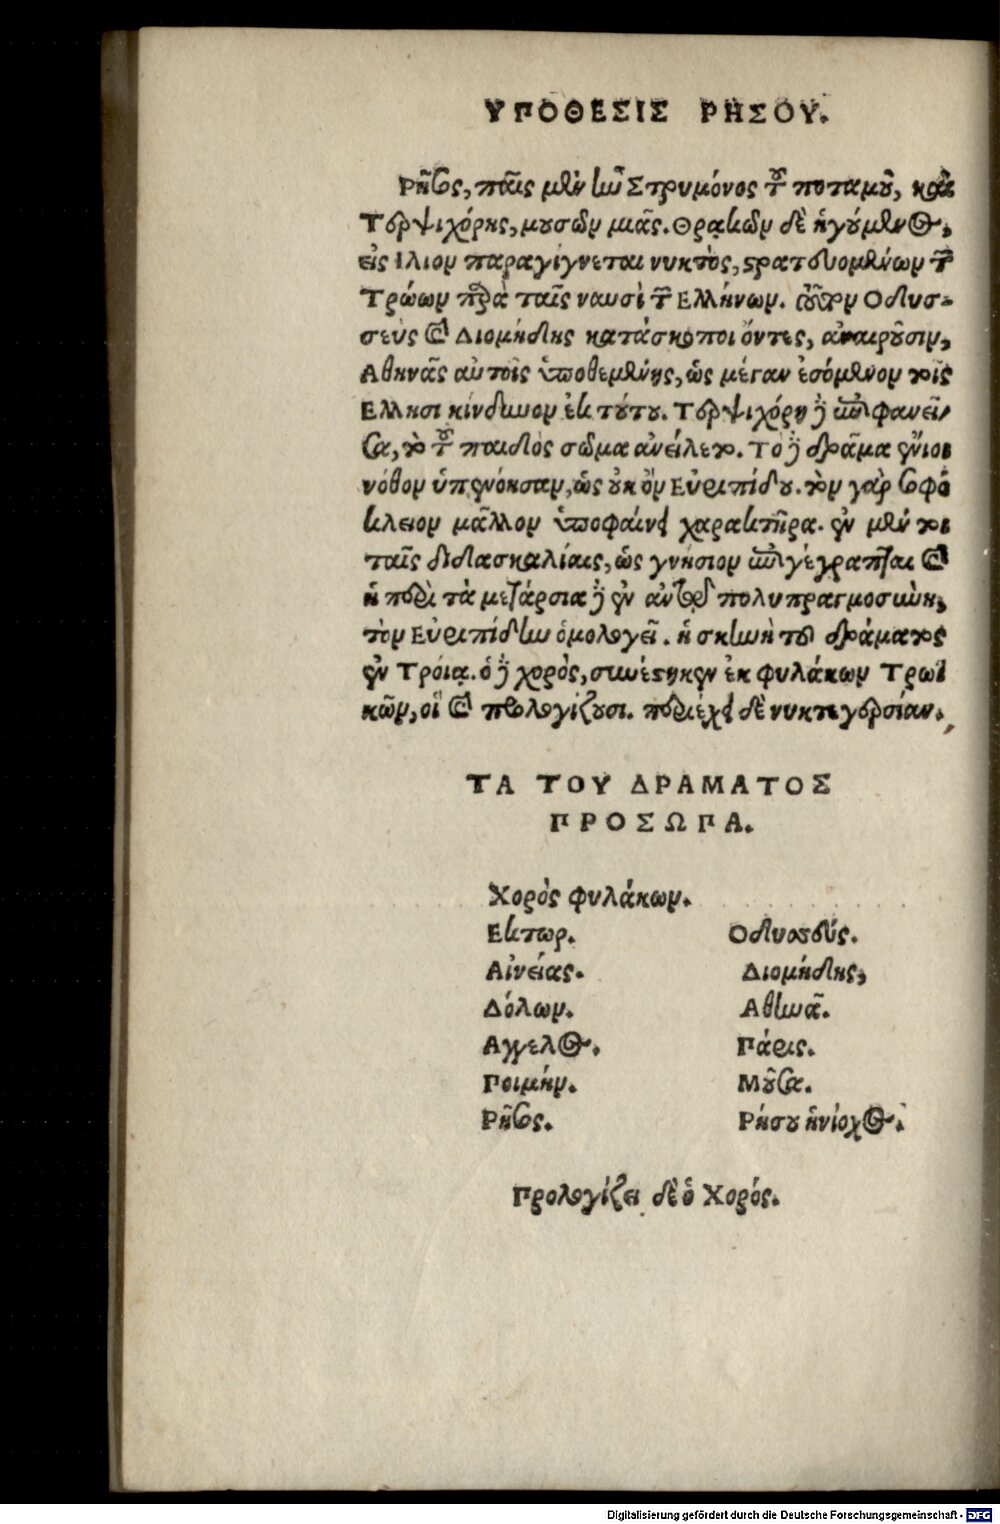 ΥΠΟΘΕΣΙΣ ΡΗΣΟΥ.
Ρῆσος, παῖς μὲν ἦν Στρυμόνος τοῦ ποταμοῦ, καὶ
Τερψιχόρης, μουσῶν μιᾶς. Θρᾳκῶν δὲ ἡγούμενος,
εἰς Ιλιον παραγίγνεται νυκτὸς, στρατευομένων τῶν
Τρώων παρὰ ταῖς ναυσὶ τῶν Ελλήνων. τοῦτον Οδυσ-
σεὺς καὶ Διομήδης κατάσκοποι ὄντες, ἀναιροῦσιν,
Αθηνᾶς αὐτοῖς ὑποθεμένης, ὡς μέγαν ἐσόμενον τοῖς
Ελλησι κίνδυνον ἐκ τούτου. Τερψιχόρη δὲ ἐπιφανεῖ-
σα, τὸ τοῦ παιδὸς σῶμα ἀνείλετο. Τὸ δὲ δρᾶμα ἔνιοι
νόθον ὑπενόησαν, ὡς οὐκ ὂν Εὐριπίδου. τὸν γὰρ σοφό
κλειον μᾶλλον ὑποφαίνει χαρακτῆρα. ἐν μέν τοι
ταῖς διδασκαλίαις, ὡς γνήσιον ἐπιγέγραπται καὶ
ἡ περὶ τὰ μετάρσια δὲ ἐν αὐτῷ πολυπραγμοσύνη,
τὸν Εὐριπίδην ὁμολογεῖ. ἡ σκηνὴ τοῦ δράματος
ἐν Τροίᾳ. ὁ δὲ χορὸς, συνέστηκεν ἐκ φυλάκων Τρωϊ
κῶν, οἳ καὶ προλογίζουσι. περιέχει δὲ νυκτεγερσίαν.
ΤΑ ΤΟΥ ΔΡΑΜΑΤΟΣ
ΠΡΟΣΩΠΑ.
Χορὸς φυλάκων.
Εκτωρ. Οδυσσεύς.
Αἰνείας. Διομήδης,
Δόλων. Αθηνᾶ.
Αγγελος. Πάρις.
Ποιμήν. Μοῦσα.
Ρῆσος. Ρήσου ἡνίοχος.
Προλογίζει δὲ ὁ Χορός.
Digitalisierung gefördert durch die Deutsche Forschungsgemeinschaft - DFG